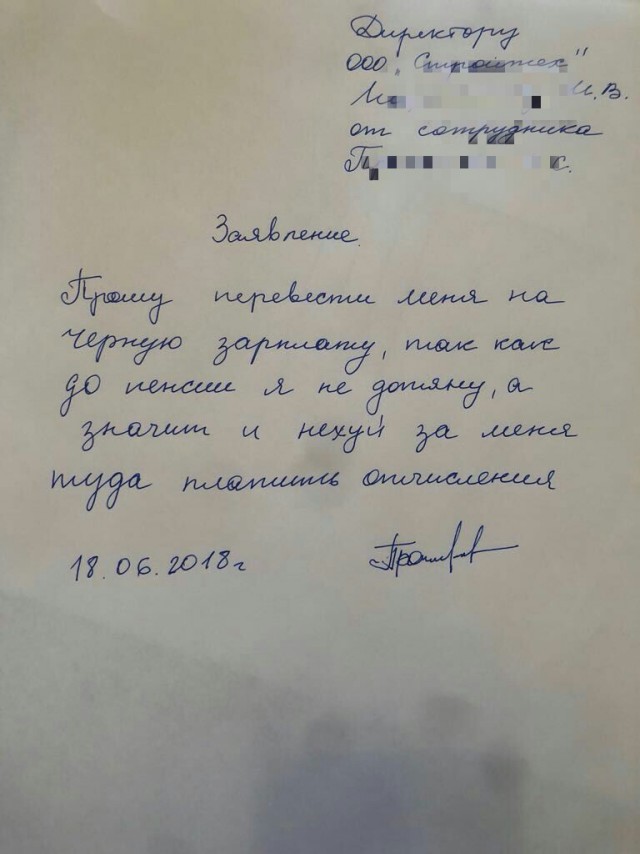 Директору
ООО "Стройтех"
И.В.
от сотрудника
Заявление.
Прошу перевести меня на
черную зарплату, так как
до пенсии я не дотяну, а
значит и нехуй за меня
туда платить отчисления
18.06.2018г